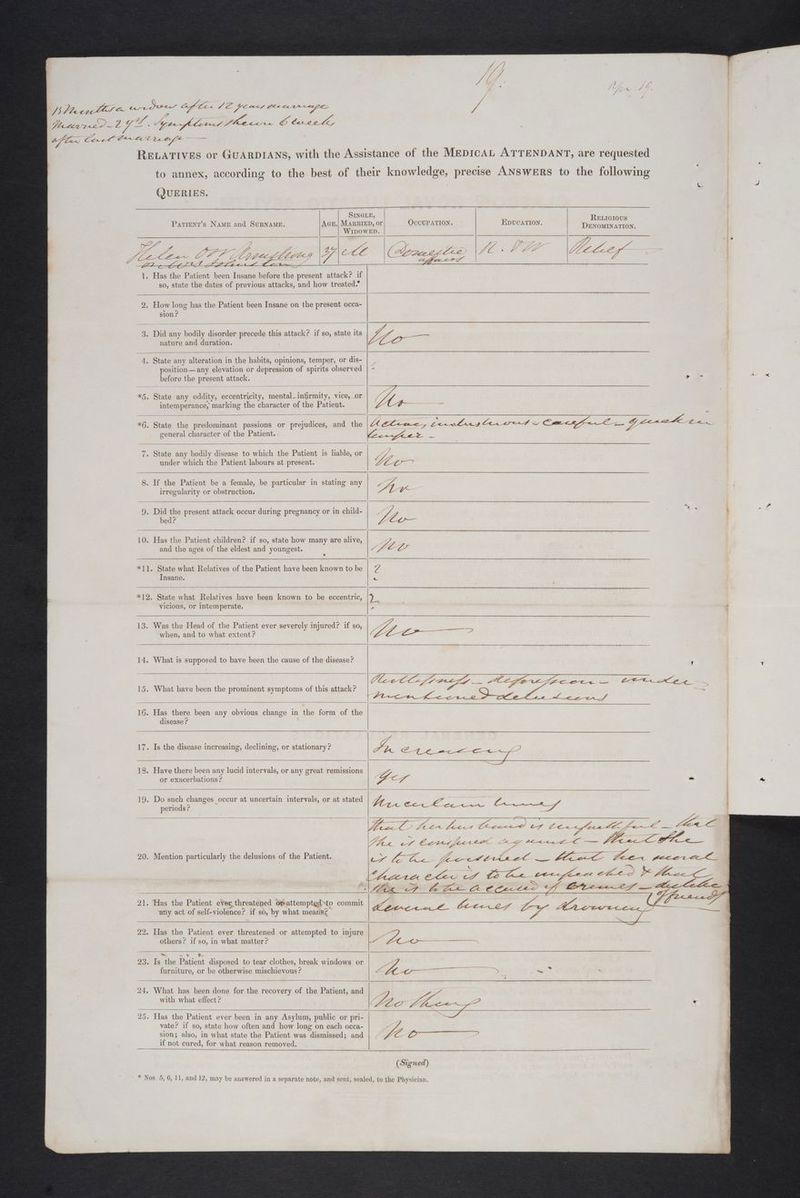 19.
Apr. 19.
13 Months a widow after 12 years marriage
Married 2 yrs. Symptoms shewn 6 weeks
after last marriage
RELATIVES or GUARDIANS, with the Assistance of the MEDICAL ATTENDANT, are requested
to annex, according to the best of their knowledge, precise ANSWERS to the following
QUERIES.
PATIENT'S NAME and SURNAME. AGE. SINGLE, MARRIED, or WIDOWED. OCCUPATION. EDUCATION. RELIGIOUS DENOMINATION.
Helen Armstrong 37 M Domestic affairs R. & W Relief
Johnston
1. Has the Patient been Insane before the present attack? if
so, state the dates of previous attacks, and how treated.
2. How long has the Patient been Insane on the present occa-
sion?
3. Did any bodily disorder precede this attack? if so, state its
nature and duration. No
4. State any alteration in the habits, opinions, temper, or dis-
position—any elevation or depression of spirits observed
before the present attack.
*5. State any oddity, eccentricity, mental infirmity, vice, or
intemperance, marking the character of the Patient. No
*6. State the predominant passions or prejudices, and the
general character of the Patient. Active, industrious - careful - quick in
temper -
7. State any bodily disease to which the Patient is liable, or
under which the Patient labours at present. No
8. If the Patient be a female, be particular in stating any
irregularity or obstruction. No
9. Did the present attack occur during pregnancy or in child-
bed? No
10. Has the Patient children? if so, state how many are alive,
and the ages of the eldest and youngest. No
*11. State what Relatives of the Patient have been known to be
Insane. ?
*12. State what Relatives have been known to be eccentric,
vicious, or intemperate. ?
13. Was the Head of the Patient ever severely injured? if so,
when, and to what extent? No
14. What is supposed to have been the cause of the disease?
15. What have been the prominent symptoms of this attack? Restlessness - depression - under
mentioned delusions
16. Has there been any obvious change in the form of the
disease?
17. Is the disease increasing, declining, or stationary? Increasing
18. Have there been any lucid intervals, or any great remissions
or exacerbations? Yes
19. Do such changes occur at uncertain intervals, or at stated
periods? Uncertain times
20. Mention particularly the delusions of the Patient. that her husband is unfaithful - that
she is conspired against - that she
is to be poisoned - that her moral
character is to be impeached & that
she is to be accused of crimes - dislike
of friends
21. Has the Patient ever threatened or attempted to commit
any act of self-violence? if so, by what means? Several times by drowning
22. Has the Patient ever threatened or attempted to injure
others? if so, in what matter? No
23. Is the Patient disposed to tear clothes, break windows or
furniture, or be otherwise mischievous? No
24. What has been done for the recovery of the Patient, and
with what effect? Nothing
25. Has the Patient ever been in any Asylum, public or pri-
vate? if so, state how often and how long on each occa-
sion; also, in what state the Patient was dismissed; and
if not cured, for what reason removed. No
(Signed)
* Nos. 5, 6, 11, and 12, may be answered in a separate note, and sent, sealed, to the Physician.